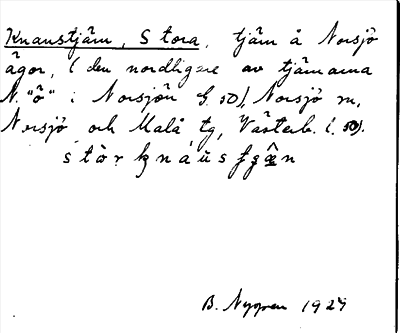 Knaustjärn, Stora, tjärn å Norsjö
ägor, (den nordligare av tjärnarna
N. "ö" i Norsjön G. 50), Norsjö sn,
Norsjö och Malå tg, Västerb. l.
B. Nygren 1927